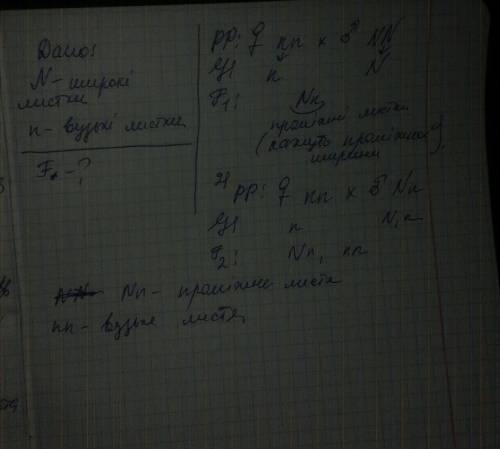 Дано:
N - широкі
листки
n - вузькі листки
F₁ - ?
PP: ♀ nn × ♂ NN
G: n N
F₁: Nn
проміжні листки
(лежить проміжної
ширини)
PP: ♀ nn × ♂ Nn
G: n N, n
F₂: Nn, nn
Nn - проміжне листя
nn - вузьке листя